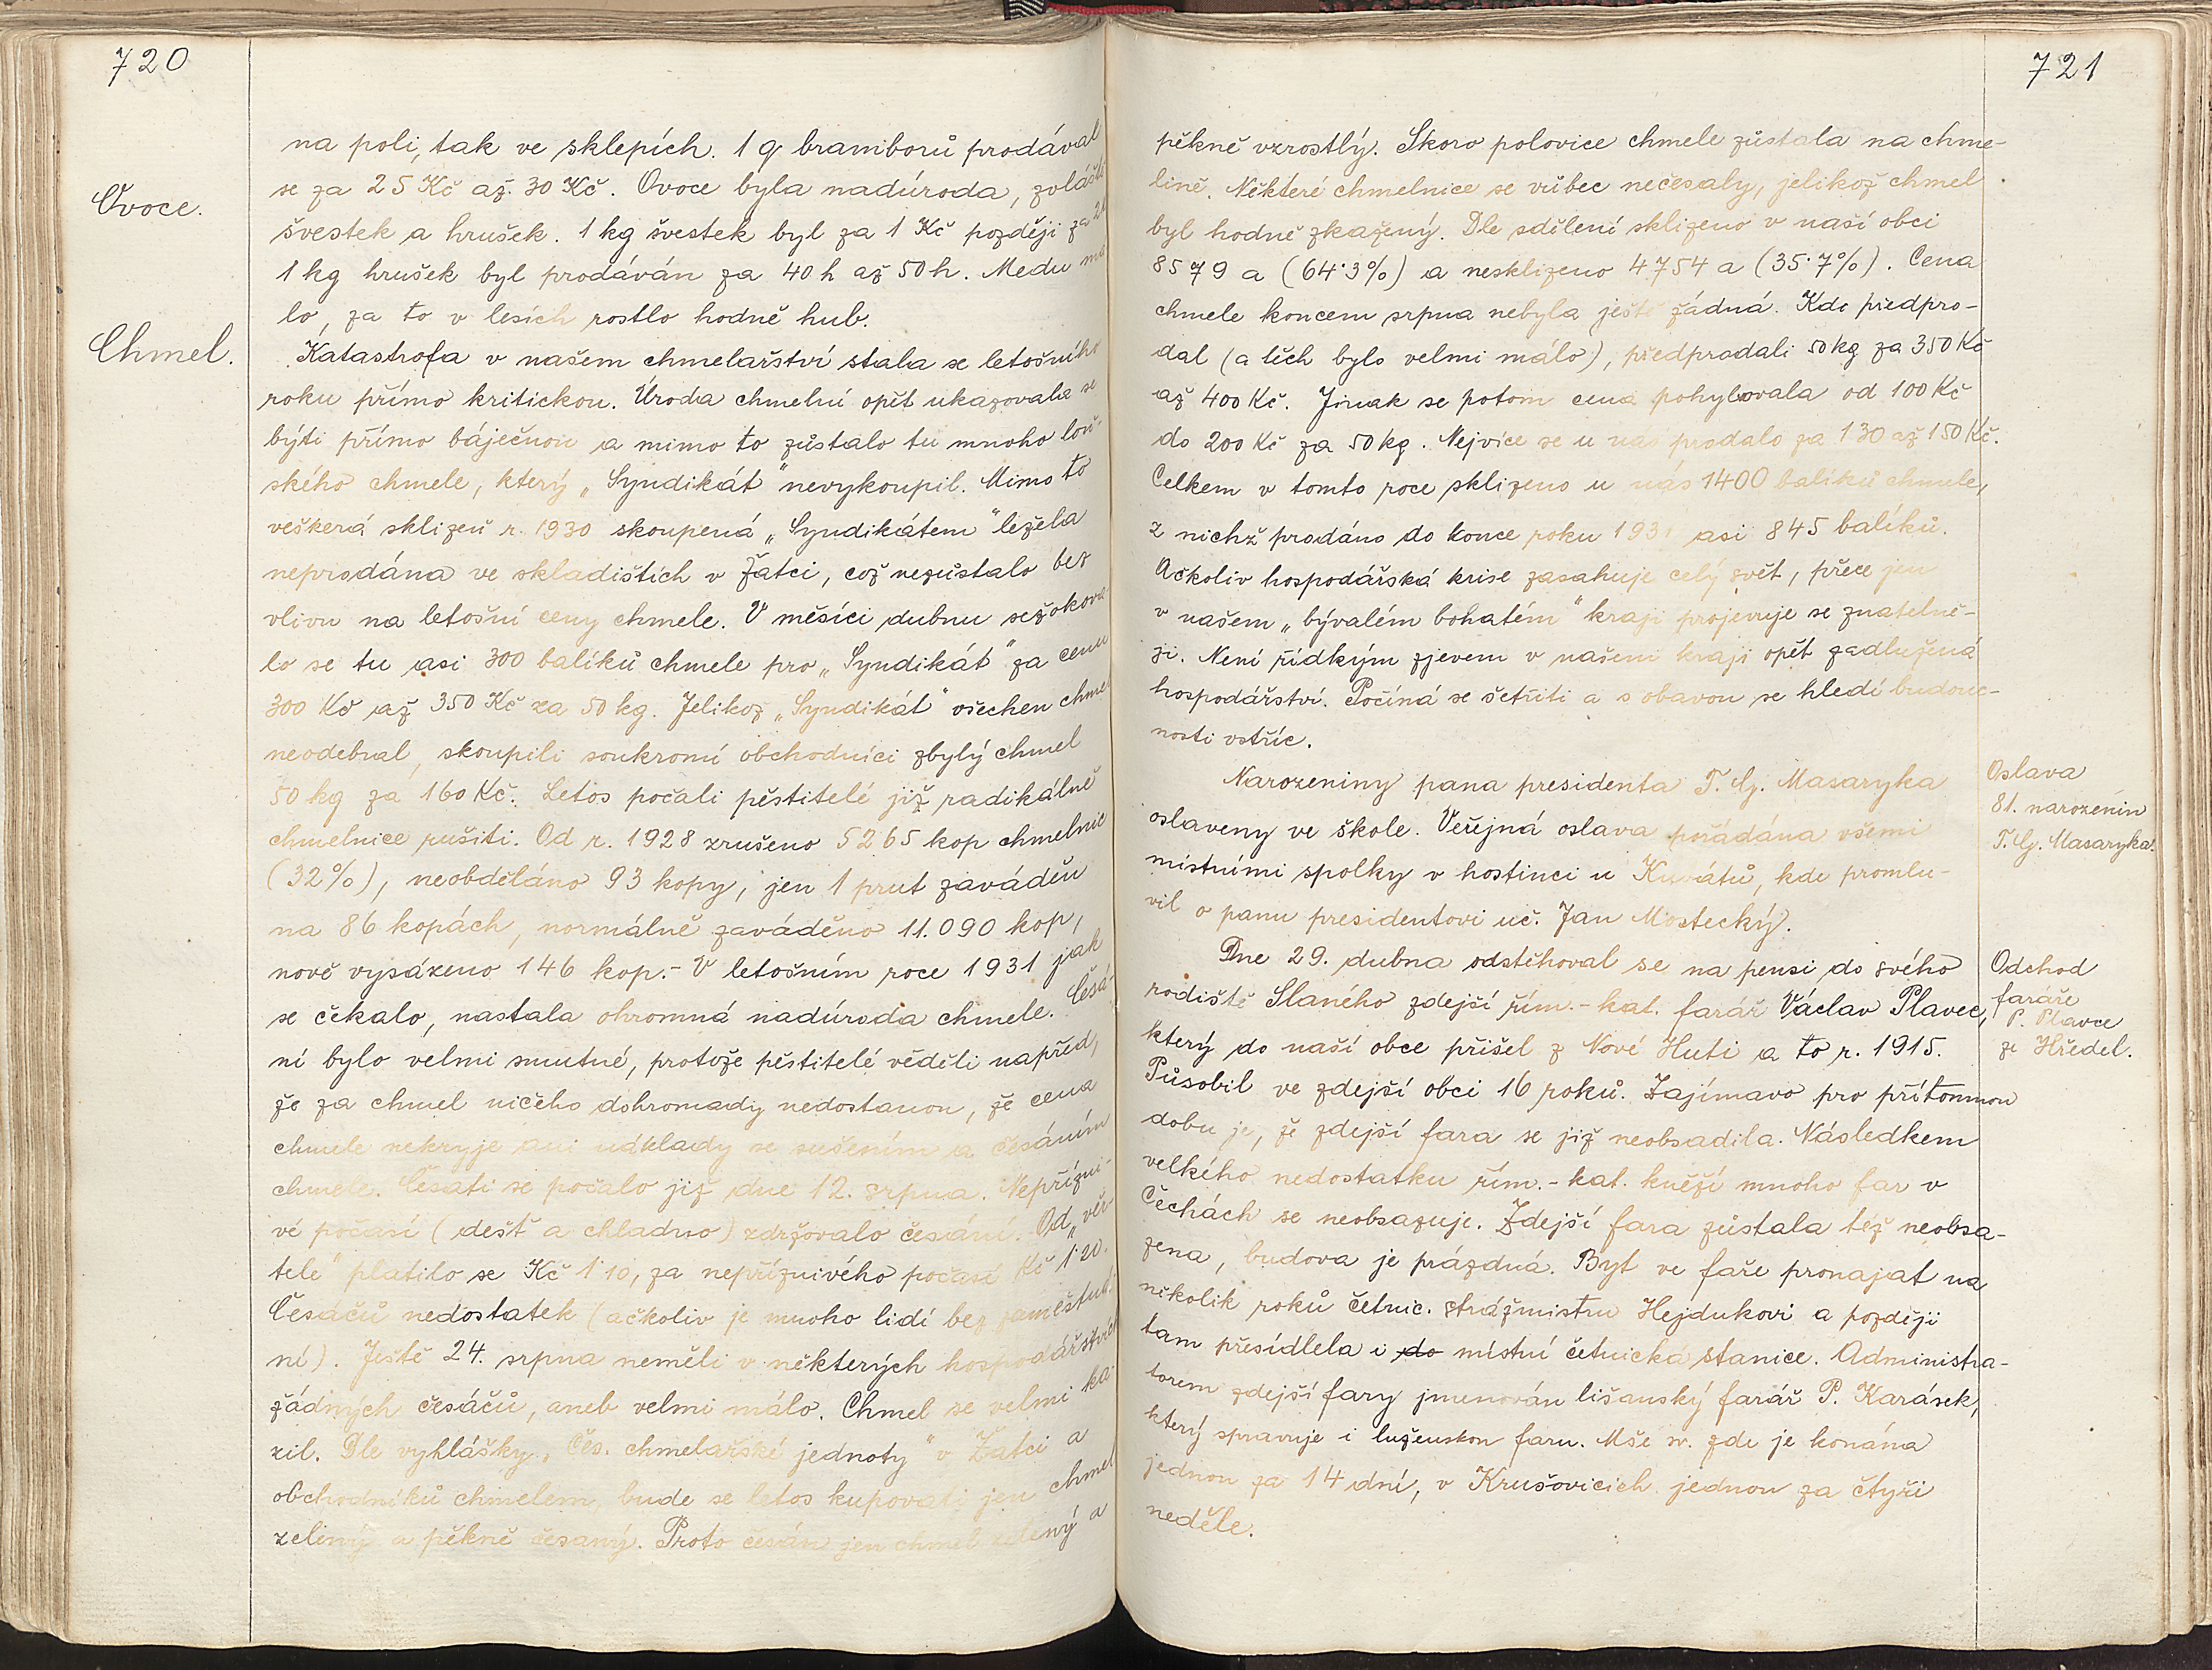 720
na poli, tak ve sklepích. 1 q bramborů prodával
se za 25 Kč až 30 Kč. Ovoce byla nadúroda, zvláště
Ovoce.
švestek a hrušek. 1 kg švestek byl za 1 Kč později za
1 kg hrušek byl prodáván za 40 h až 50 h. Medu má
lo, za to v lesích rostlo hodně hub.
Chmel.
Katastrofa v našem chmelařství stala se letošního
roku přímo kritickou. Úroda chmelní opět ukazovala se
býti přímo báječnou a mimo to zůstalo tu mnoho loň-
ského chmele, který „Syndikát" nevykoupil. Mimo to
veškerá sklizeň r. 1930 skoupená „Syndikátem" ležela
neprodána ve skladištích v Žatci, což nezůstalo bez
vlivu na letošní ceny chmele. V měsíci dubnu sežokova-
lo se tu asi 300 balíků chmele pro „Syndikát" za cenu
300 Kč až 350 Kč za 50 kg. Jelikož „Syndikát" všechen chmel
neodebral, skoupili soukromí obchodníci zbylý chmel
50 kg za 160 Kč. Letos počali pěstitelé již radikálně
chmelnice rušiti. Od r. 1928 zrušeno 5265 kop chmelnic
(32%), neobděláno 93 kopy, jen 1 prut zaváděn
na 86 kopách, normálně zaváděno 11.090 kop,
nově vysázeno 146 kop.- V letošním roce 1931 jak
se čekalo, nastala ohromná nadúroda chmele. Česá-
ní bylo velmi smutné, protože pěstitelé věděli napřed,
že za chmel ničeho dohromady nedostanou, že cena
chmele nekryje ani náklady se sušením a česáním
chmele. Česati se počalo již dne 12. srpna. Nepřízni-
vé počasí (dešť a chladno) zdržovalo česání. Od „věr-
tele" platilo se Kč 1·10, za nepříznivého počasí Kč 1·20.
Česáčů nedostatek (ačkoliv je mnoho lidí bez zaměstná-
ní). Ještě 24. srpna neměli v některých hospodářstvích
žádných česáčů, aneb velmi málo. Chmel se velmi ka-
zil. Dle vyhlášky „Čes. chmelařské jednoty" v Žatci a
obchodníků chmelem, bude se letos kupovati jen chmel
zelený a pěkně česaný. Proto česán jen chmel zelený a
721
pěkně vzrostlý. Skoro polovice chmele zůstala na chme-
lině. Některé chmelnice se vůbec nečesaly, jelikož chmel
byl hodně zkažený. Dle sdělení sklizeno v naší obci
8579 a (64·3%) a nesklizeno 4754 a (35·7%). Cena
chmele koncem srpna nebyla ještě žádná. Kdo předpro-
dal (a těch bylo velmi málo), předprodali 50 kg za 350 Kč
až 400 Kč. Jinak se potom cena pohybovala od 100 Kč
do 200 Kč za 50 kg. Nejvíce se u nás prodalo za 130 až 150 Kč.
Celkem v tomto roce sklizeno u nás 1400 balíků chmele,
z nichž prodáno do konce roku 1931 asi 845 balíků.
Ačkoliv hospodářská krise zasahuje celý svět, přece jen
v našem „bývalém bohatém" kraji projevuje se znatelně-
ji. Není řídkým zjevem v našem kraji opět zadlužená
hospodářství. Počíná se šetřiti a s obavou se hledí budouc-
nosti vstříc.
Narozeniny pana presidenta T. G. Masaryka
oslaveny ve škole. Veřejná oslava pořádána všemi
místními spolky v hostinci u Kurátů, kde promlu-
vil o panu presidentovi uč. Jan Mostecký.
Oslava
81. narozenin
T. G. Masaryka.
Dne 29. dubna odstěhoval se na pensi do svého
rodiště Slaného zdejší řím.-kat. farář Václav Plavec,
který do naší obce přišel z Nové Huti a to r. 1915.
Odchod
faráře
P. Plavce
ze Hředel.
Působil ve zdejší obci 16 roků. Zajímavo pro přítomnou
dobu je, že zdejší fara se již neobsadila. Následkem
velkého nedostatku řím.-kat. kněží mnoho far v
Čechách se neobsazuje. Zdejší fara zůstala též neobsa-
zena, budova je prázdná. Byt ve faře pronajat na
několik roků četnic. strážmistru Hejdukovi a později
tam přesídlela i do místní četnická stanice. Administra-
torem zdejší fary jmenován lišanský farář P. Karásek,
který spravuje i luženskou faru. Mše sv. zde je konána
jednou za 14 dní, v Krušovicích jednou za čtyři
neděle.